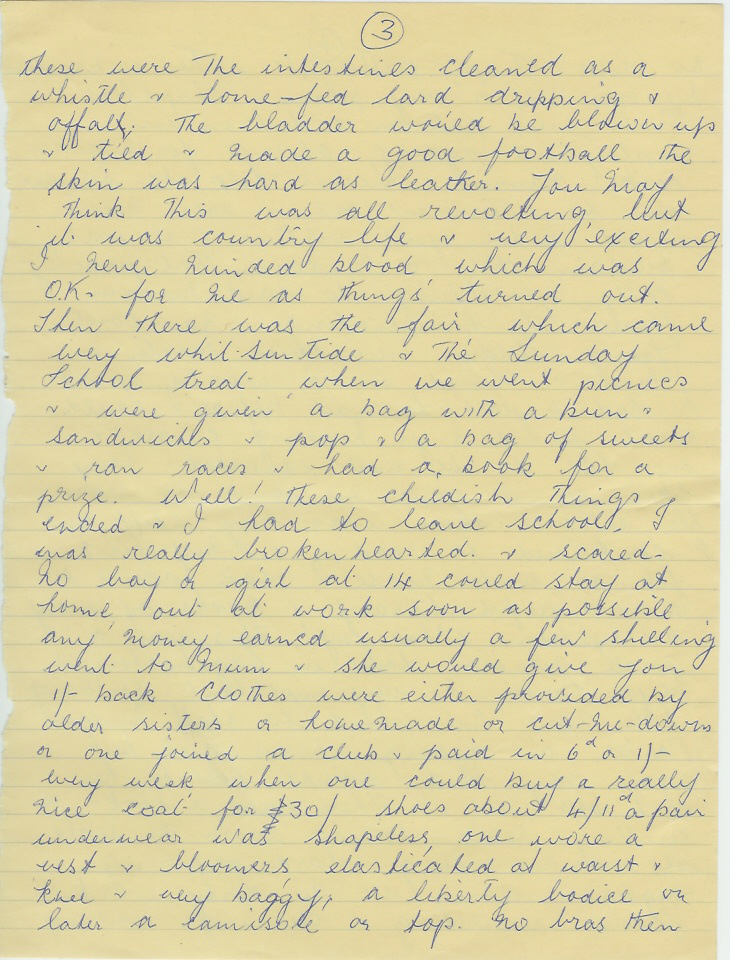 3
these were The intestines cleaned as a
whistle & home-fed lard dripping &
offall; The bladder would be blown up
& tied & made a good football the
skin was hard as leather. You may
think this was all revolting, but
it was country life & very exciting.
I never minded blood, which was
O.K. for me as things turned out.
Then there was the fair which came
every whit-sun tide & The Sunday
School treat when we went picnics
& were given a bag with a bun &
sandwiches & pop & a bag of sweets
& ran races & had a book for a
prize. Well! these childish things
ended & I had to leave school, I
was really brokenhearted. & scared-
no boy or girl at 14 could stay at
home, out at work soon as possible
any money earned usually a few shilling
went to Mum & she would give you
1/- back Clothes were either provided by
older sisters or homemade or cut-me-downs
or one joined a club & paid in 6d or 1/-
every week when one could buy a really
nice coat for 30/ shoes about 4/11d a pair
underwear was shapeless, one wore a
vest & bloomers elasticated at waist &
knee & very baggy, a liberty bodice or
later a camisole or top. No bras then